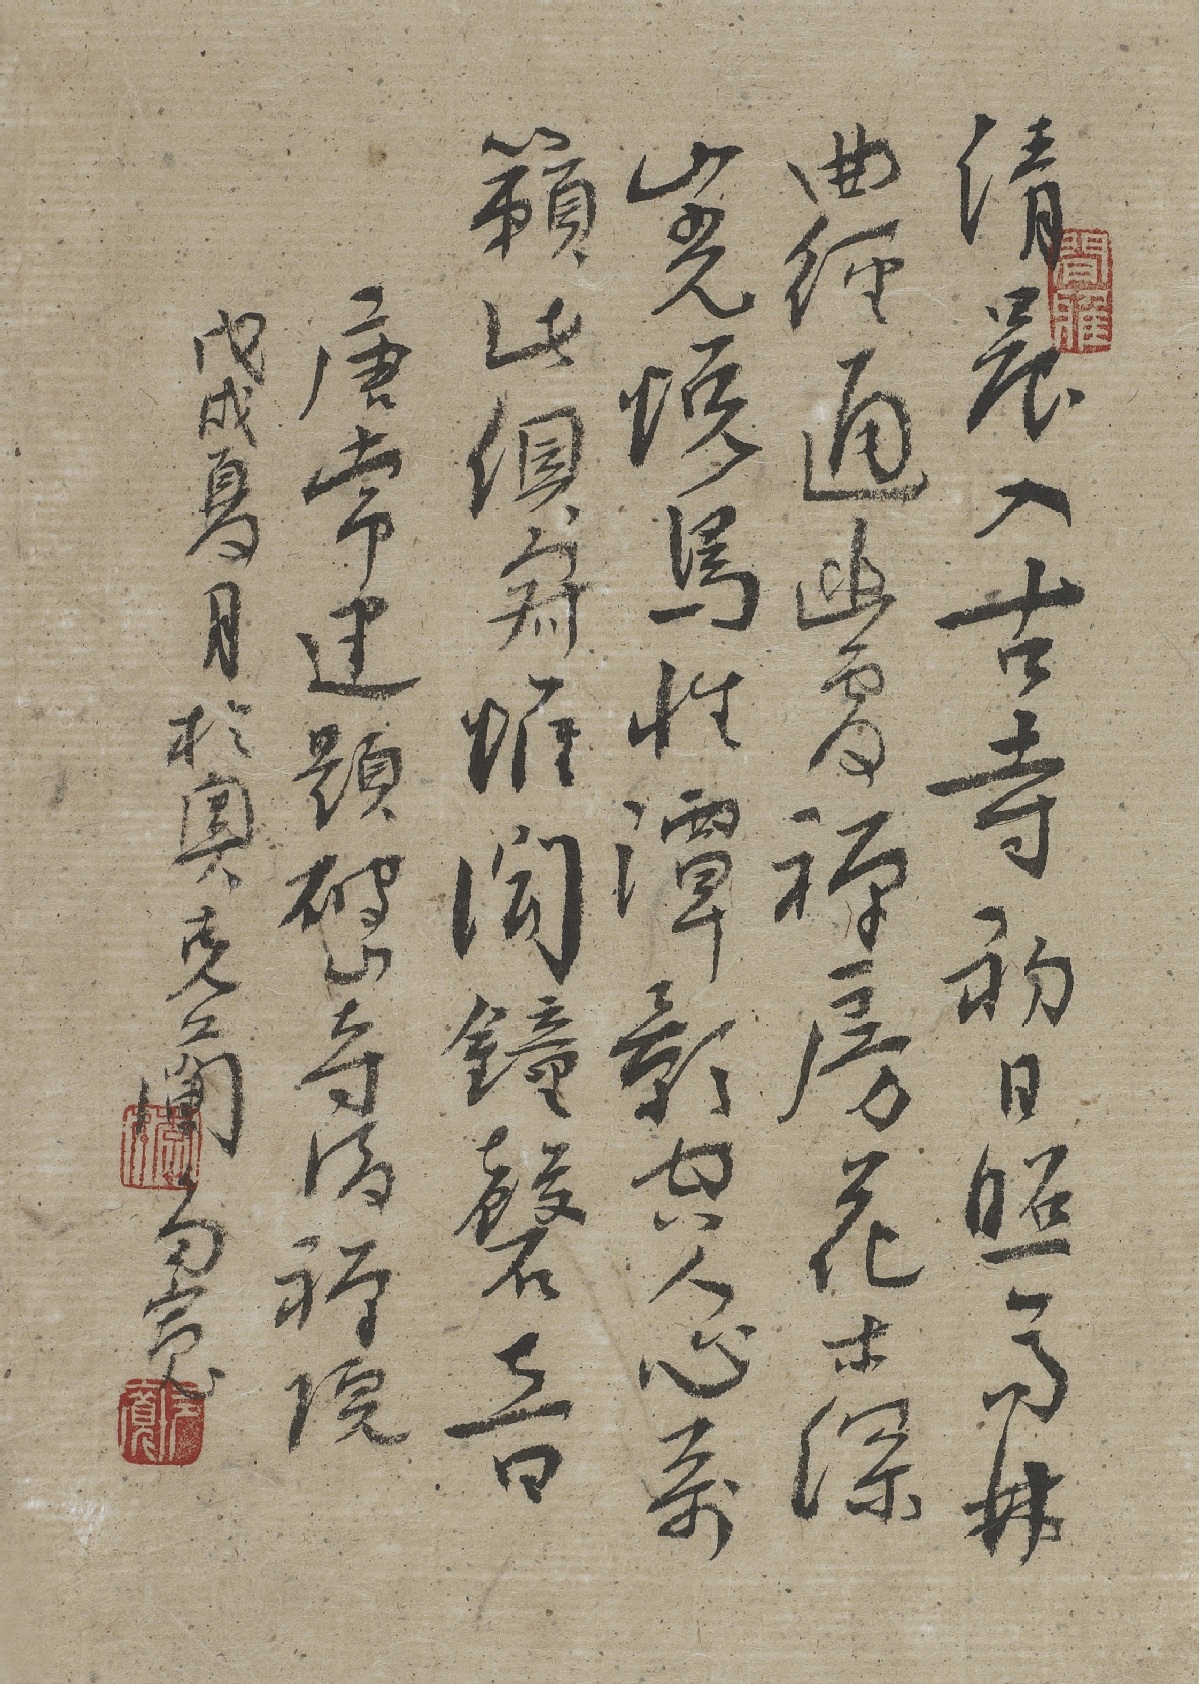 清晨入古寺初日照高林
曲徑通幽處禪房花木深
山光悅鳥性潭影空人心萬
籟此俱寂惟聞鐘磬音
唐常建題破山寺後禪院
戊戌夏月於奧克蘭